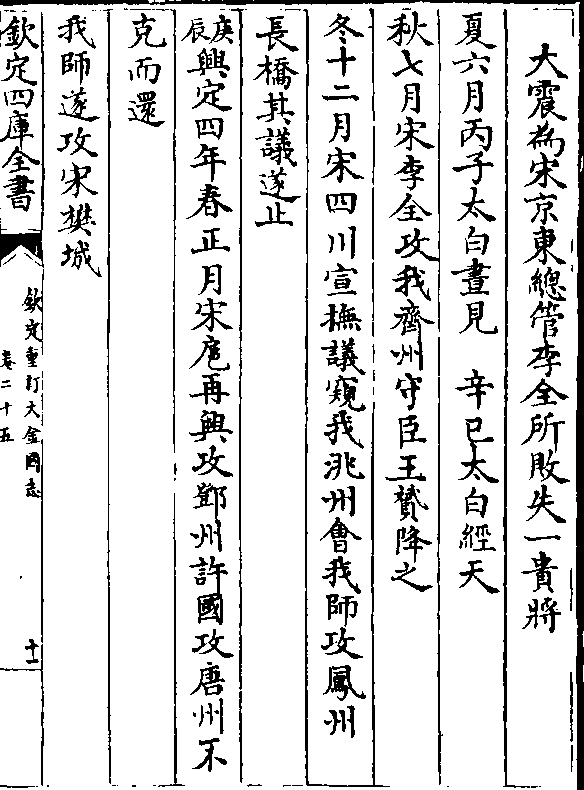 大震為宋京東總管李全所敗失一貴將
夏六月丙子太白晝見　辛巳太白經天
秋七月宋李全攻我齊州守臣王贇降之
冬十二月宋四川宣撫議窺我洮州會我師攻鳳州
長橋其議遂止
庚辰興定四年春正月宋扈再興攻鄧州許國攻唐州不
克而還
我師遂攻宋樊城
欽定四庫全書
欽定重訂大金國志
卷二十五
十一